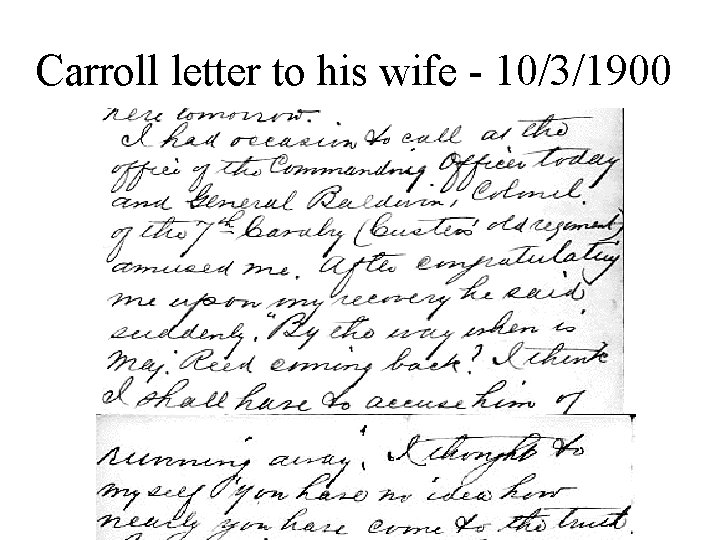 Carroll letter to his wife - 10/3/1900
here tomorrow.
I had occasion to call at the
office of the Commanding Officer today
and General Baldwin, Colonel.
of the 7th Cavalry (Custers' old regiment)
amused me. After congratulating
me upon my recovery he said
suddenly, "By the way when is
Maj. Reed coming back? I think
I shall have to accuse him of
running away'. I thought to
myself "you have no idea how
nearly you have come to the truth.